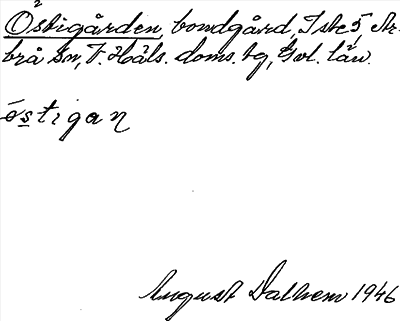 Östigården, bondgård, Iste 5, Ar-
brå sn, V. Häls. doms. bg, Gvl. län.
östigan
August Dalhem 1946